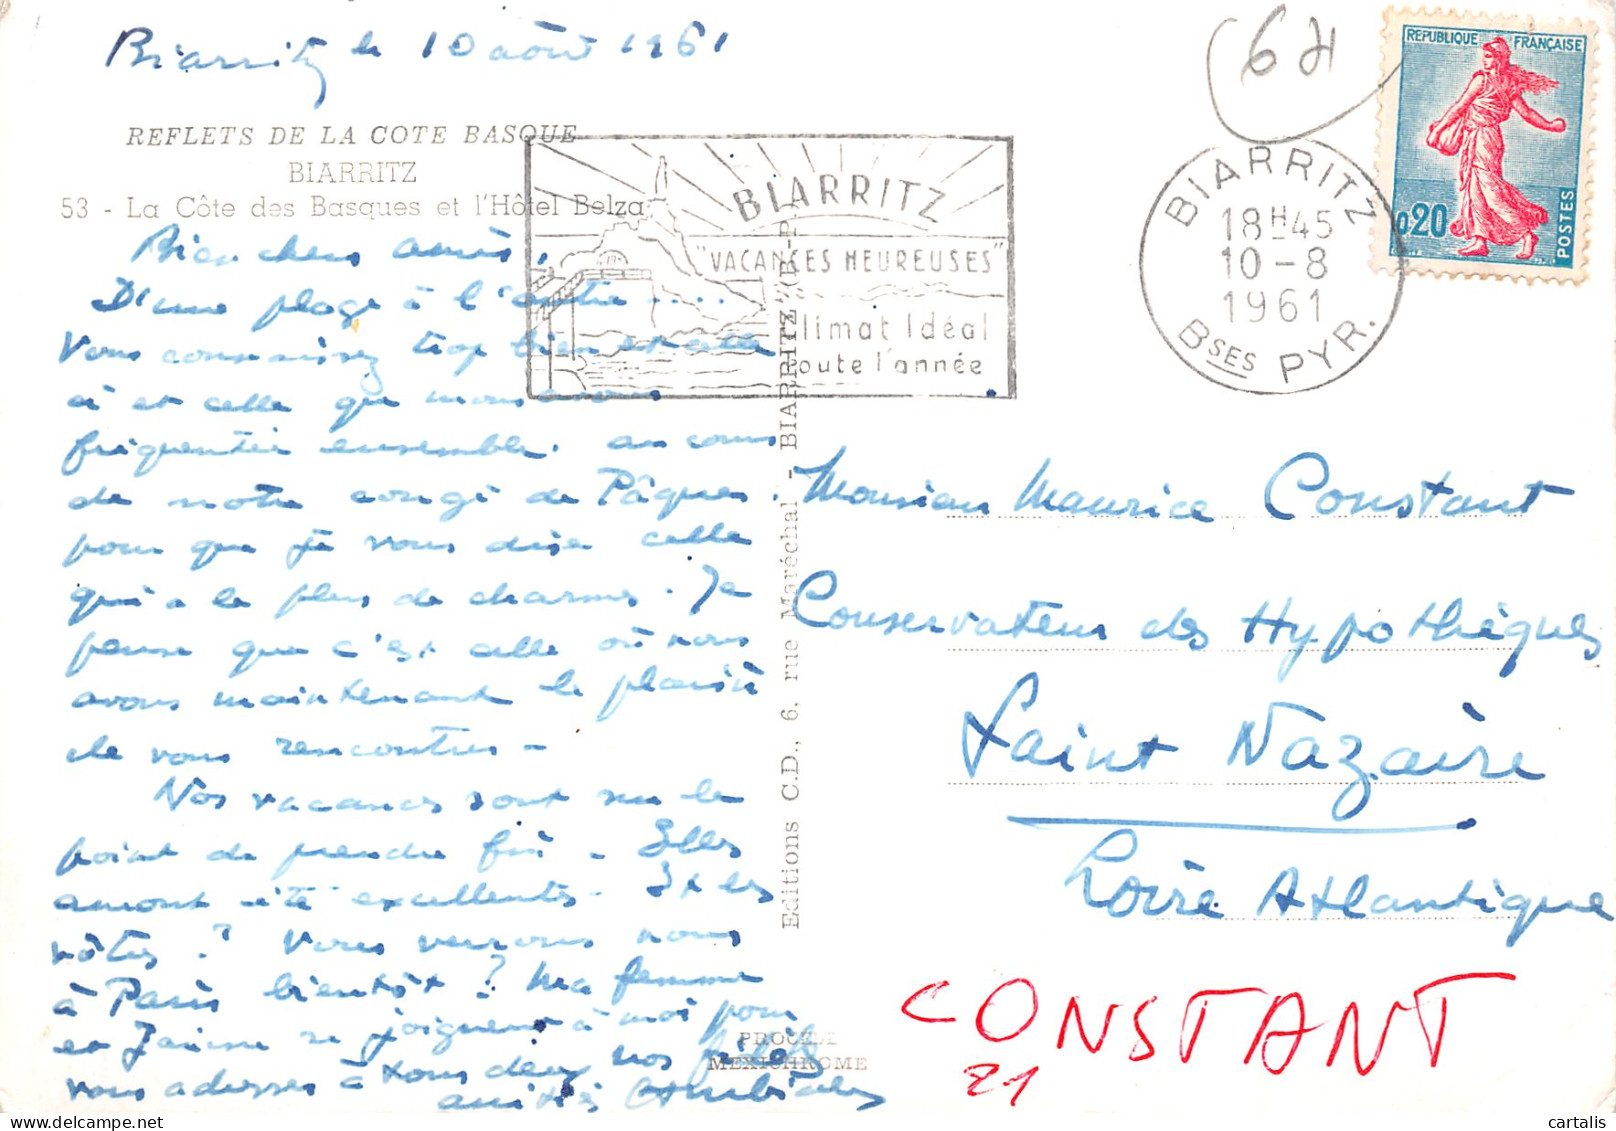 Biarritz le 10 août 1961
REFLETS DE LA COTE BASQUE
BIARRITZ
53 - La Côte des Basques et l'Hôtel Belza
Bien chers amis,
D'une plage à l'autre ....
Vous connaissez trop bien et cette
ci et celle que nous avons
fréquentée ensemble au cours
de notre congé de Pâques.
pour que je vous dise celle
qui a le plus de charmes. Je
pense que c'est celle où nous
avons maintenant le plaisir
de vous rencontrer -
Nos vacances sont sur le
point de prendre fin - Elles
auront été excellentes - Et les
vôtres ? Vous verrons nous
à Paris bientôt ? Ma femme
et se joignent à moi pour
vous adresser à tous deux nos
amitiés
BIARRITZ
"VACANCES HEUREUSES"
Climat Idéal
toute l'année
BIARRITZ
18H45
10-8
1961
Bses PYR.
64
REPUBLIQUE FRANÇAISE
0,20
POSTES
Editions C.D., 6, rue Maréchal - BIARRITZ (B-P.)
Monsieur Maurice Constant
Conservateur des Hypothèques
Saint Nazaire
Loire Atlantique
PROCÉDÉ
MEXICHROME
CONSTANT
21
cartalis
delcampe.net